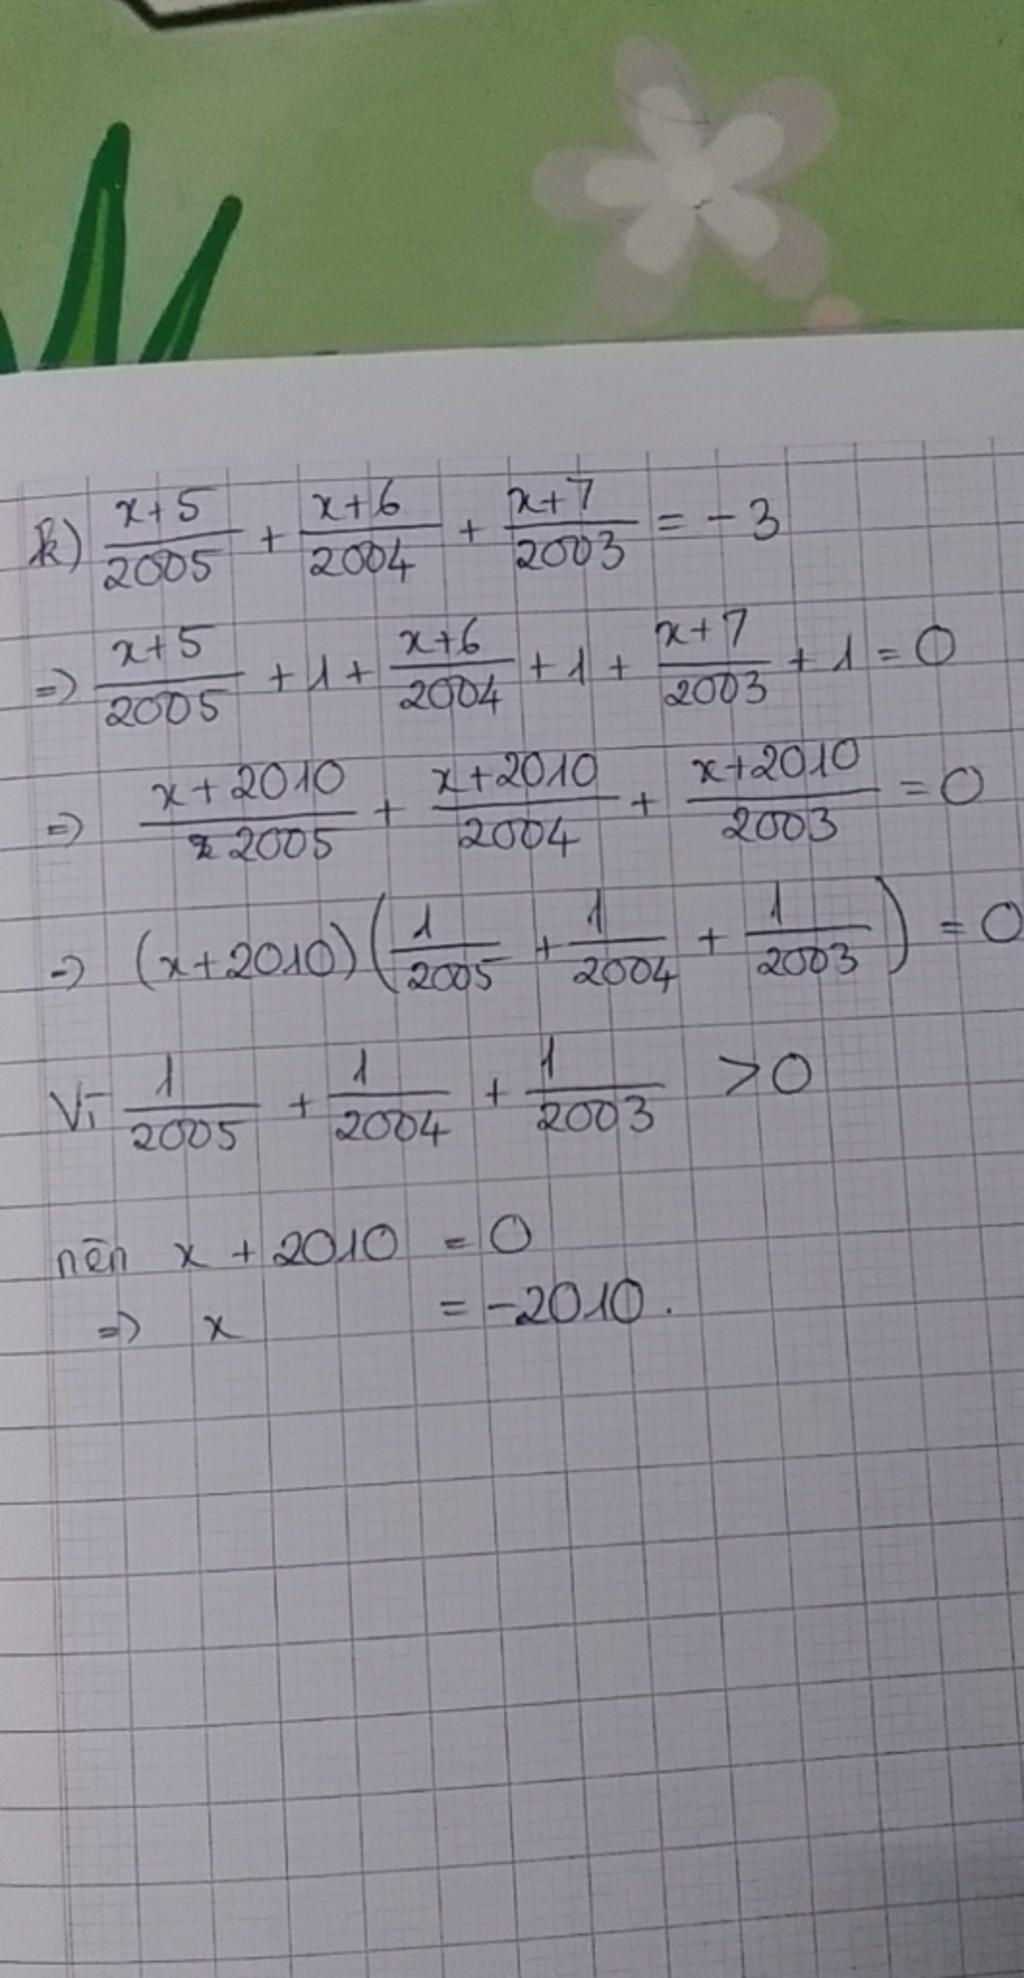 k) \frac{x+5}{2005} + \frac{x+6}{2004} + \frac{x+7}{2003} = -3
=> \frac{x+5}{2005} + 1 + \frac{x+6}{2004} + 1 + \frac{x+7}{2003} + 1 = 0
=> \frac{x+2010}{2005} + \frac{x+2010}{2004} + \frac{x+2010}{2003} = 0
=> (x+2010)(\frac{1}{2005} + \frac{1}{2004} + \frac{1}{2003}) = 0
Vì \frac{1}{2005} + \frac{1}{2004} + \frac{1}{2003} > 0
nên x + 2010 = 0
=> x = -2010.